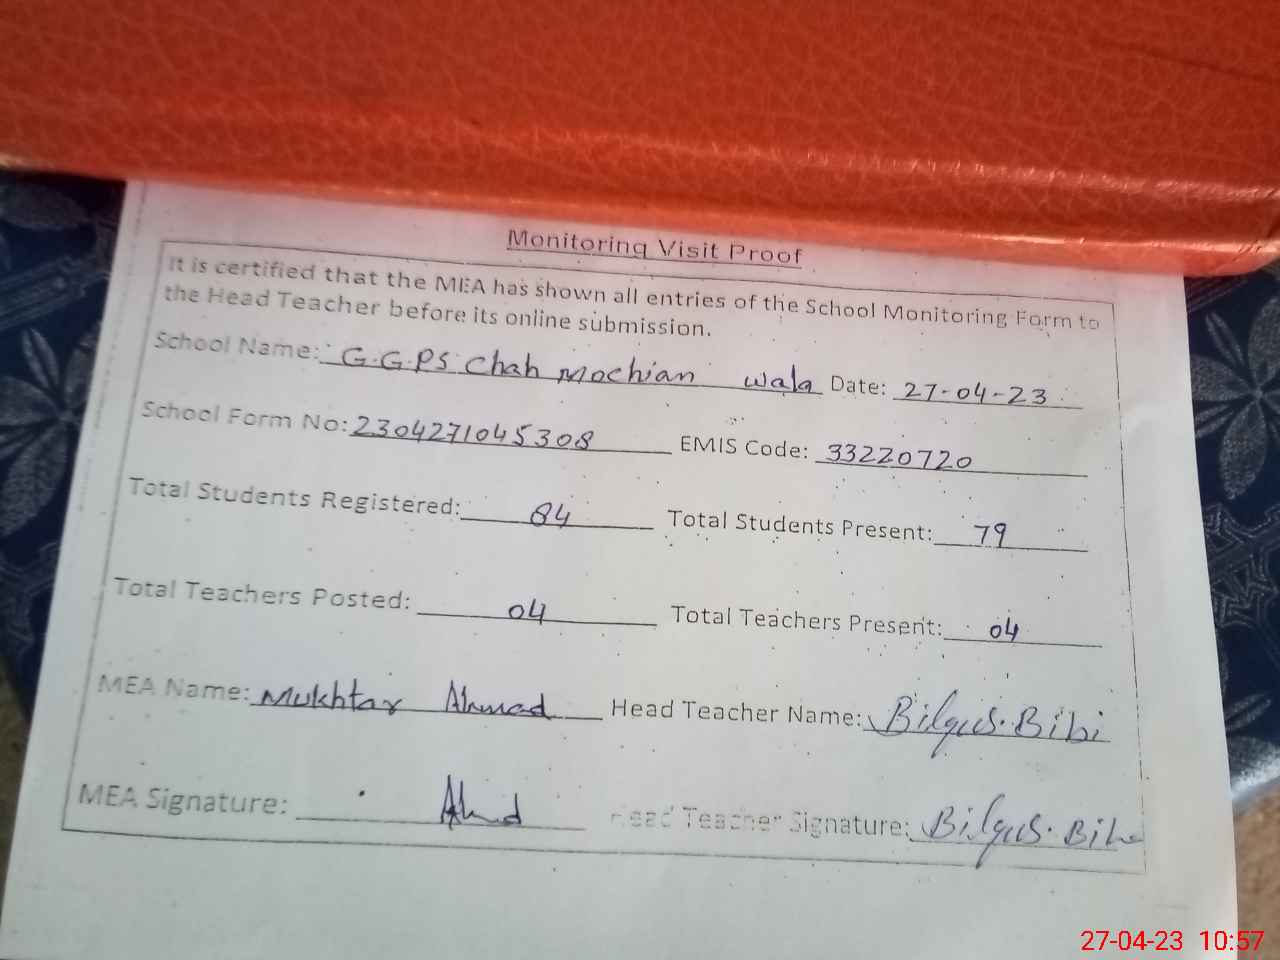 Monitoring Visit Proof
It is certified that the MEA has shown all entries of the School Monitoring Form to
the Head Teacher before its online submission.
School Name: G.G.PS Chah Mochian wala Date: 27-04-23
School Form No: 2304271045308 EMIS Code: 33220720
Total Students Registered: 84 Total Students Present: 79
Total Teachers Posted: 04 Total Teachers Present: 04
MEA Name: Mukhtar Ahmad Head Teacher Name: Bilqus.Bibi
MEA Signature: Ahmd Head Teacher Signature: Bilqus.Bibi
27-04-23 10:57